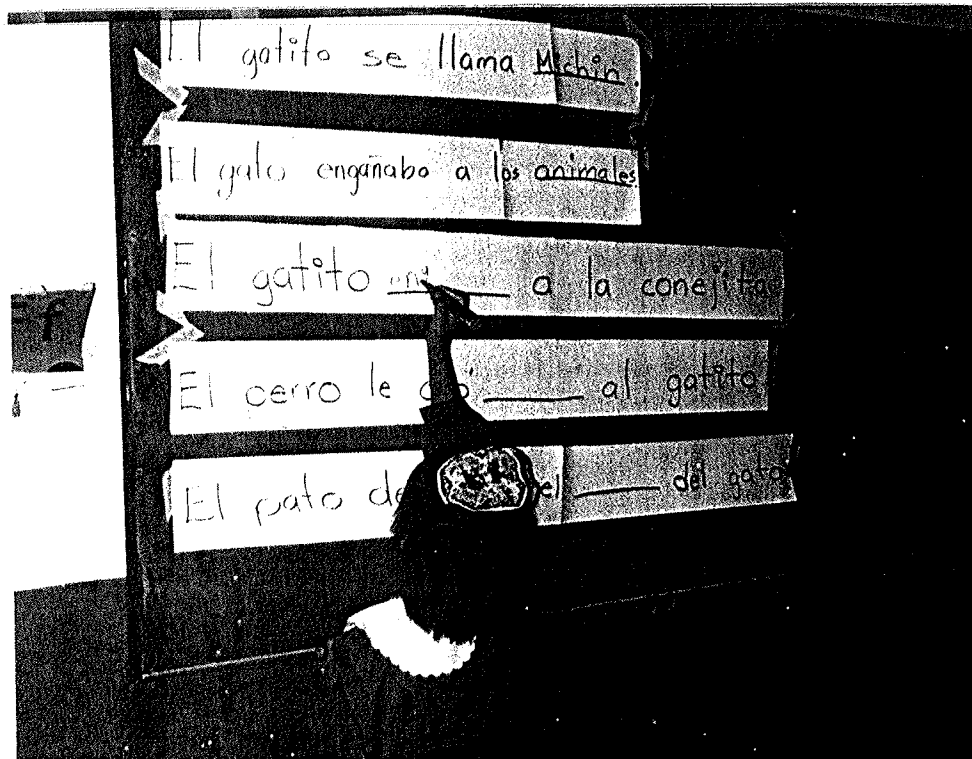 El gatito se llama Michin.
El gato engañabo a los animales.
El gatito en a la conejita
El perro le al gatito
El pato del gato
F f